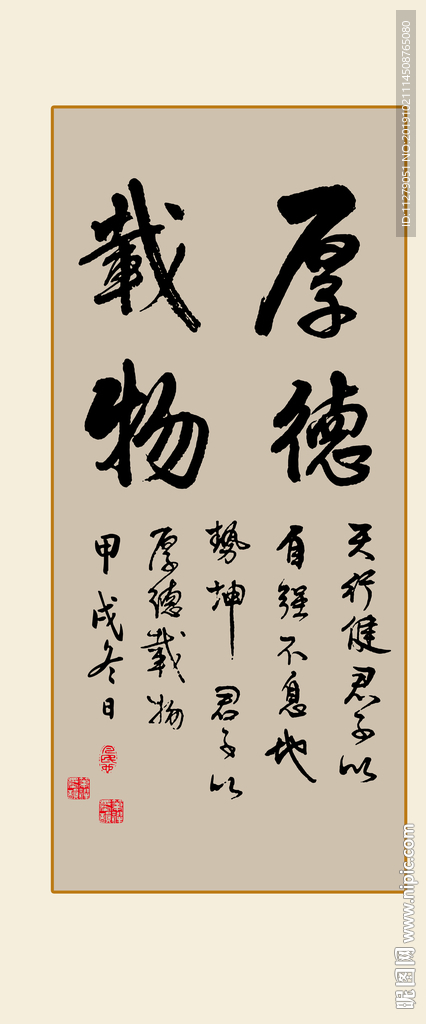 厚德
載物
天行健君子以
自强不息地
勢坤君子以
厚德載物
甲戌冬日
ID:11279051 NO:20191021114508765080
昵图网 www.nipic.com